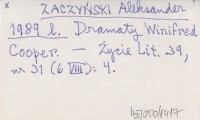 ZACZYŃSKI Aleksander
1989 l. Dramaty Winifred
Cooper. — Życie Lit. 39,
nr 31 (6 VIII): 4.